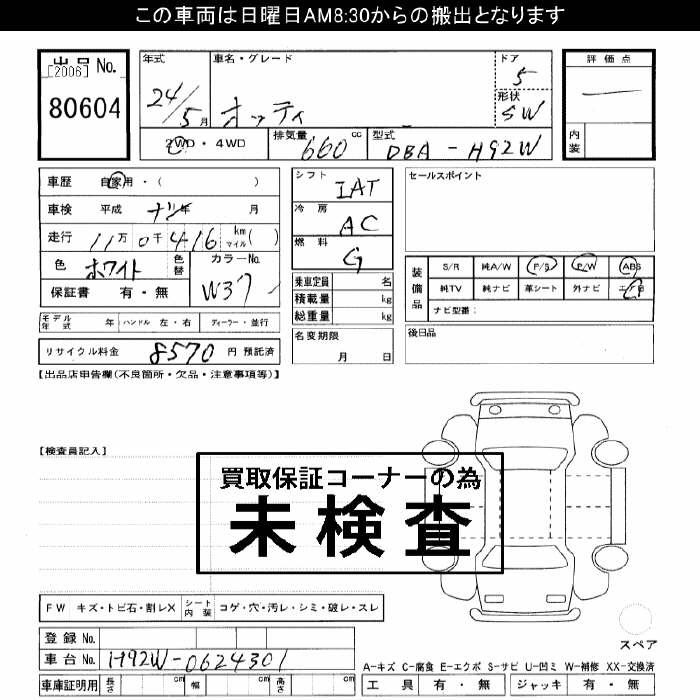 この車両は日曜日AM8:30からの搬出となります
出品No.
[2006]
80604
年式 24/5月
車名・グレード オッティ
ドア 5
形状 SW
2WD・4WD
排気量 660 cc
型式 DBA-H92W
評価点
内装
車歴 自家用・( )
車検 平成 年 月
走行 11万0千416 km マイル( )
色 ホワイト 色替 カラーNo. W37
保証書 有・無
モデル年式 年 ハンドル 左・右 ディーラー・並行
リサイクル料金 8570 円 預託済
シフト IAT
冷房 AC
燃料 G
乗車定員 名
積載量 kg
総重量 kg
名変期限 月 日
セールスポイント
装備品 S/R 純A/W P/S P/W ABS
純TV 純ナビ 革シート 外ナビ
ナビ型番:
後日品
【出品店申告欄(不良箇所・欠品・注意事項等)】
【検査員記入】
買取保証コーナーの為
未検査
FW キズ・トビ石・割レX シート内装 コゲ・穴・汚レ・シミ・破レ・スレ
登録No.
車台No. H92W-0624301
車庫証明用 長さ cm 幅 cm 高さ cm
スペア
A-キズ C-腐食 E-エクボ S-サビ U-凹ミ W-補修 XX-交換済
工具 有・無 ジャッキ 有・無